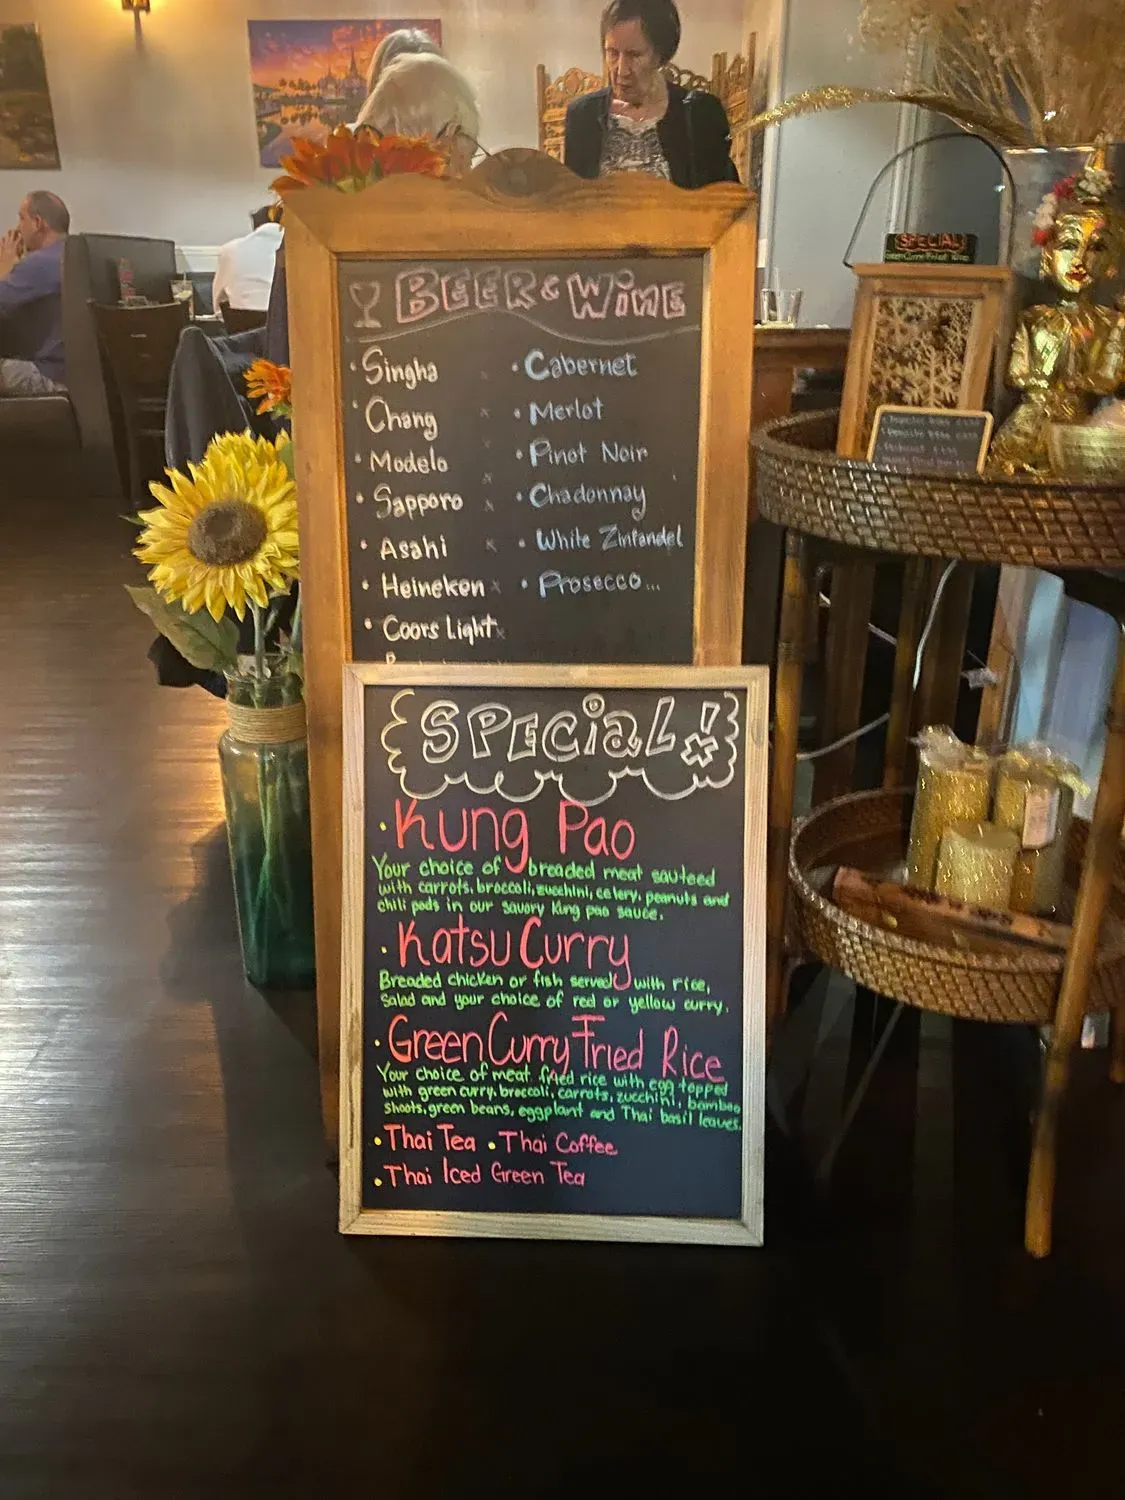 BEER & WINE
• Singha
• Chang
• Modelo
• Sapporo
• Asahi
• Heineken
• Coors Light
• Cabernet
• Merlot
• Pinot Noir
• Chadonnay
• White Zinfandel
• Prosecco...
SPECiaL!
• Kung Pao
Your choice of breaded meat sauteed
with carrots, broccoli, zucchini, celery, peanuts and
chili pods in our savory Kung pao sauce.
• Katsu Curry
Breaded chicken or fish served with rice,
salad and your choice of red or yellow curry.
• Green Curry Fried Rice
Your choice of meat fried rice with egg topped
with green curry, broccoli, carrots, zucchini, bamboo
shoots, green beans, eggplant and Thai basil leaves.
• Thai Tea • Thai Coffee
• Thai Iced Green Tea
SPECIAL
Green Curry Fried Rice